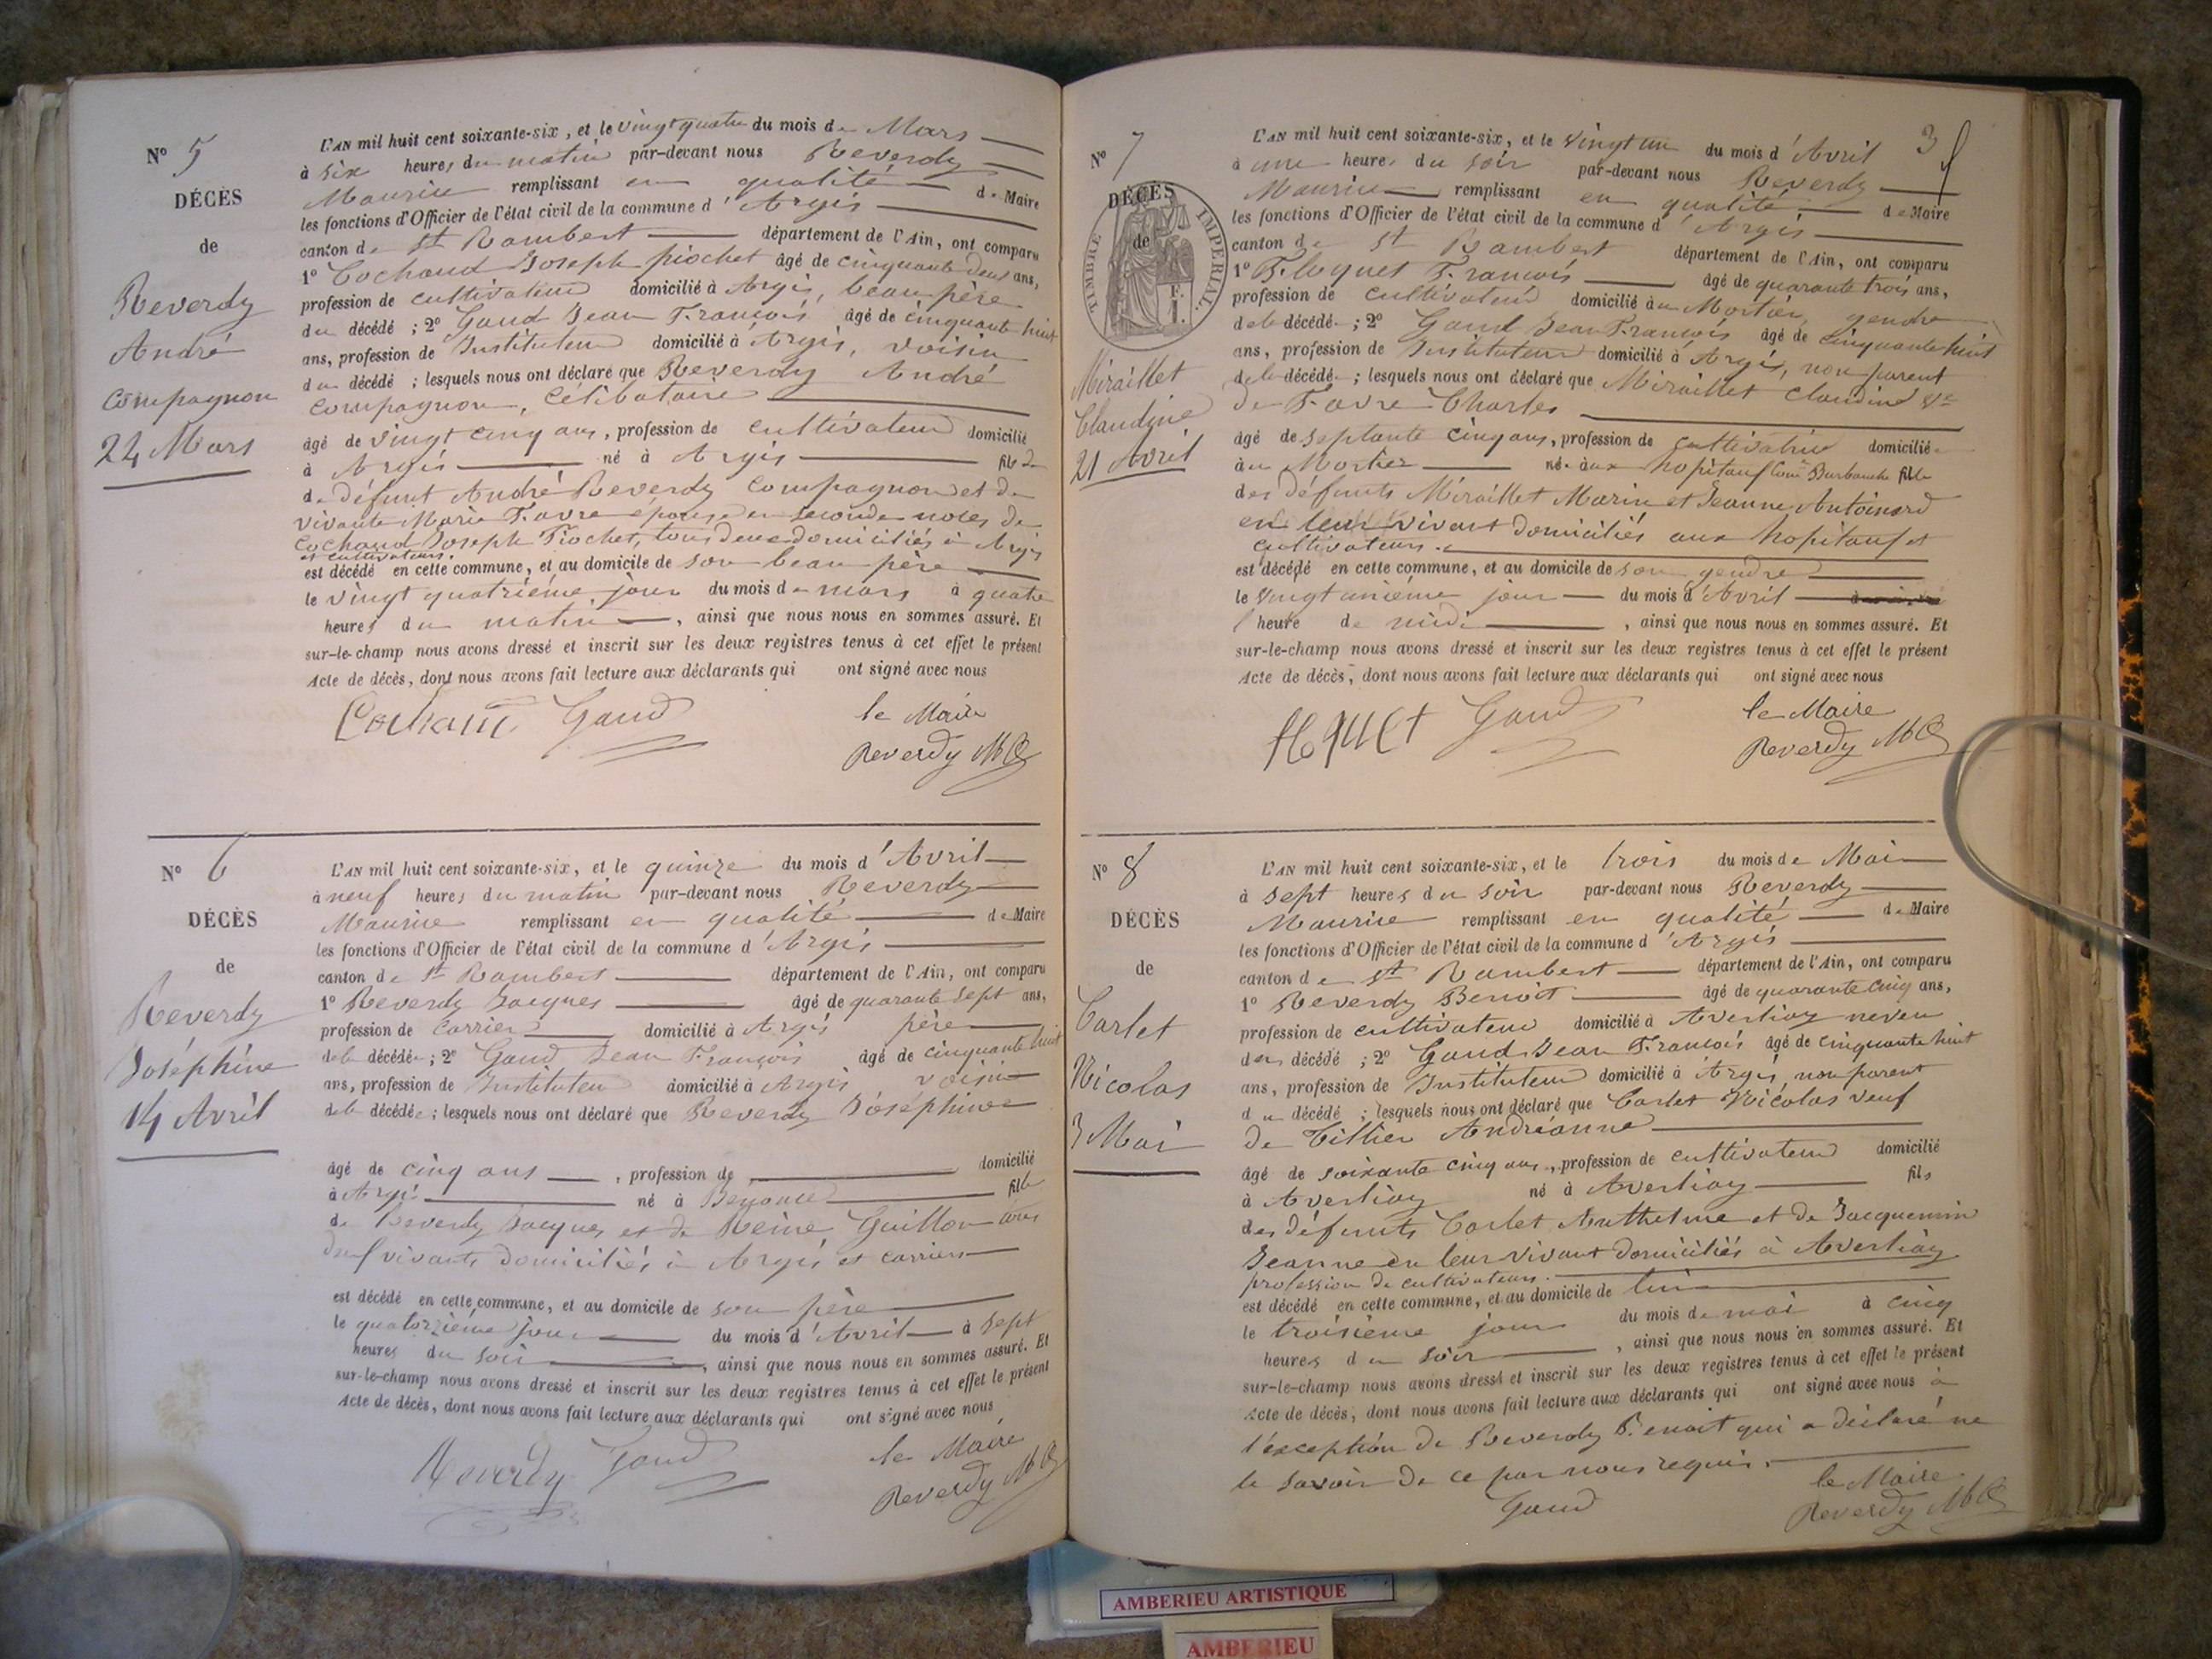 N° 5
DÉCÈS
de
Reverdy
André
Compagnon
24 Mars
L'AN mil huit cent soixante-six, et le vingt quatre du mois de Mars
à six heures du matin par-devant nous Reverdy
Maurice remplissant en qualité de Maire
les fonctions d'Officier de l'état civil de la commune d'Argis
canton de St Rambert département de l'Ain, ont comparu
1° Cochaud Joseph piochet âgé de cinquante deux ans,
profession de cultivateur domicilié à Argis, beau père
du décédé ; 2° Gaud Jean François âgé de cinquante huit
ans, profession de Instituteur domicilié à Argis, voisin
du décédé ; lesquels nous ont déclaré que Reverdy André
Compagnon, Célibataire
âgé de vingt cinq ans, profession de cultivateur domicilié
à Argis né à Argis fils de
de défunt André Reverdy Compagnon et de
vivante Marie Favre épouse en seconde noces de
Cochaud Joseph Piochet, tous deux domiciliés à Argis
et cultivateurs.
est décédé en cette commune, et au domicile de son beau père
le vingt quatrième jour du mois de mars à quatre
heures du matin, ainsi que nous nous en sommes assuré. Et
sur-le-champ nous avons dressé et inscrit sur les deux registres tenus à cet effet le présent
Acte de décès, dont nous avons fait lecture aux déclarants qui ont signé avec nous
Gaud
le Maire
Reverdy
N° 6
DÉCÈS
de
Reverdy
Joséphine
14 Avril
L'AN mil huit cent soixante-six, et le quinze du mois d'Avril
à neuf heures du matin par-devant nous Reverdy
Maurice remplissant en qualité de Maire
les fonctions d'Officier de l'état civil de la commune d'Argis
canton de St Rambert département de l'Ain, ont comparu
1° Reverdy Jacques âgé de quarante sept ans,
profession de Carrier domicilié à Argis père
de la décédée ; 2° Gaud Jean François âgé de cinquante huit
ans, profession de Instituteur domicilié à Argis voisin
de la décédée ; lesquels nous ont déclaré que Reverdy Joséphine
âgé de cinq ans, profession de domicilié
à Argis né à fille
de Reverdy Jacques et de Reine Guillon tous
deux vivants domiciliés à Argis et carriers
est décédé en cette commune, et au domicile de son père
le quatorzième jour du mois d'Avril à sept
heures du soir, ainsi que nous nous en sommes assuré. Et
sur-le-champ nous avons dressé et inscrit sur les deux registres tenus à cet effet le présent
Acte de décès, dont nous avons fait lecture aux déclarants qui ont signé avec nous
Reverdy Gaud
le Maire
Reverdy
3
N° 7
DÉCÈS
de
TIMBRE IMPERIAL.
Miraillet
Claudine
21 Avril
L'AN mil huit cent soixante-six, et le vingt un du mois d'Avril
à une heure du soir par-devant nous Reverdy
Maurice remplissant en qualité de Maire
les fonctions d'Officier de l'état civil de la commune d'Argis
canton de St Rambert département de l'Ain, ont comparu
1° Floquet François âgé de quarante trois ans,
profession de cultivateur domicilié au Mortier, gendre
de la décédée ; 2° Gaud Jean François âgé de cinquante huit
ans, profession de Instituteur domicilié à Argis, non parent
de la décédée ; lesquels nous ont déclaré que Miraillet Claudine Ve
de Favre Charles
âgé de septante cinq ans, profession de cultivatrice domiciliée
au Mortier née aux hopitaux Burbanche fille
des défunts Miraillet Marin et Jeanne Antoinard
en leur vivant domiciliés aux hopitaux et
cultivateurs.
est décédé en cette commune, et au domicile de son gendre
le vingt unième jour du mois d'Avril
l'heure de midi, ainsi que nous nous en sommes assuré. Et
sur-le-champ nous avons dressé et inscrit sur les deux registres tenus à cet effet le présent
Acte de décès, dont nous avons fait lecture aux déclarants qui ont signé avec nous
Gaud
le Maire
Reverdy
N° 8
DÉCÈS
de
Carlet
Nicolas
3 Mai
L'AN mil huit cent soixante-six, et le trois du mois de Mai
à sept heures du soir par-devant nous Reverdy
Maurice remplissant en qualité de Maire
les fonctions d'Officier de l'état civil de la commune d'Argis
canton de St Rambert département de l'Ain, ont comparu
1° Reverdy Benoit âgé de quarante cinq ans,
profession de cultivateur domicilié à Averliaz neveu
du décédé ; 2° Gaud Jean François âgé de cinquante huit
ans, profession de Instituteur domicilié à Argis, non parent
du décédé ; lesquels nous ont déclaré que Carlet Nicolas veuf
de Tillier Andréanne
âgé de soixante cinq ans, profession de cultivateur domicilié
à Averliaz né à Averliaz fils
des défunts Carlet Anthelme et de Jacquemin
Jeanne en leur vivant domiciliés à Averliaz
profession de cultivateurs.
est décédé en cette commune, et au domicile de lui
le troisième jour du mois de mai à cinq
heures du soir, ainsi que nous nous en sommes assuré. Et
sur-le-champ nous avons dressé et inscrit sur les deux registres tenus à cet effet le présent
Acte de décès, dont nous avons fait lecture aux déclarants qui ont signé avec nous à
l'exception de Reverdy Benoit qui a déclaré ne
le savoir de ce par nous requis.
Gaud
le Maire
Reverdy
AMBERIEU ARTISTIQUE
AMBERIEU